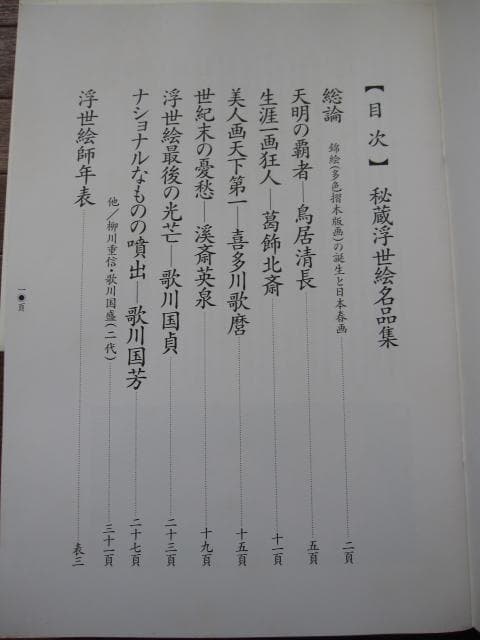 【目次】 秘蔵浮世絵名品集
総論
錦絵(多色摺木版画)の誕生と日本春画 二頁
天明の覇者―鳥居清長 五頁
生涯一画狂人―葛飾北斎 十一頁
美人画天下第一―喜多川歌麿 十五頁
世紀末の憂愁―溪斎英泉 十九頁
浮世絵最後の光芒―歌川国貞 二十三頁
ナショナルなものの噴出―歌川国芳 二十七頁
他/柳川重信・歌川国盛(二代) 三十一頁
浮世絵師年表 表三
一●頁